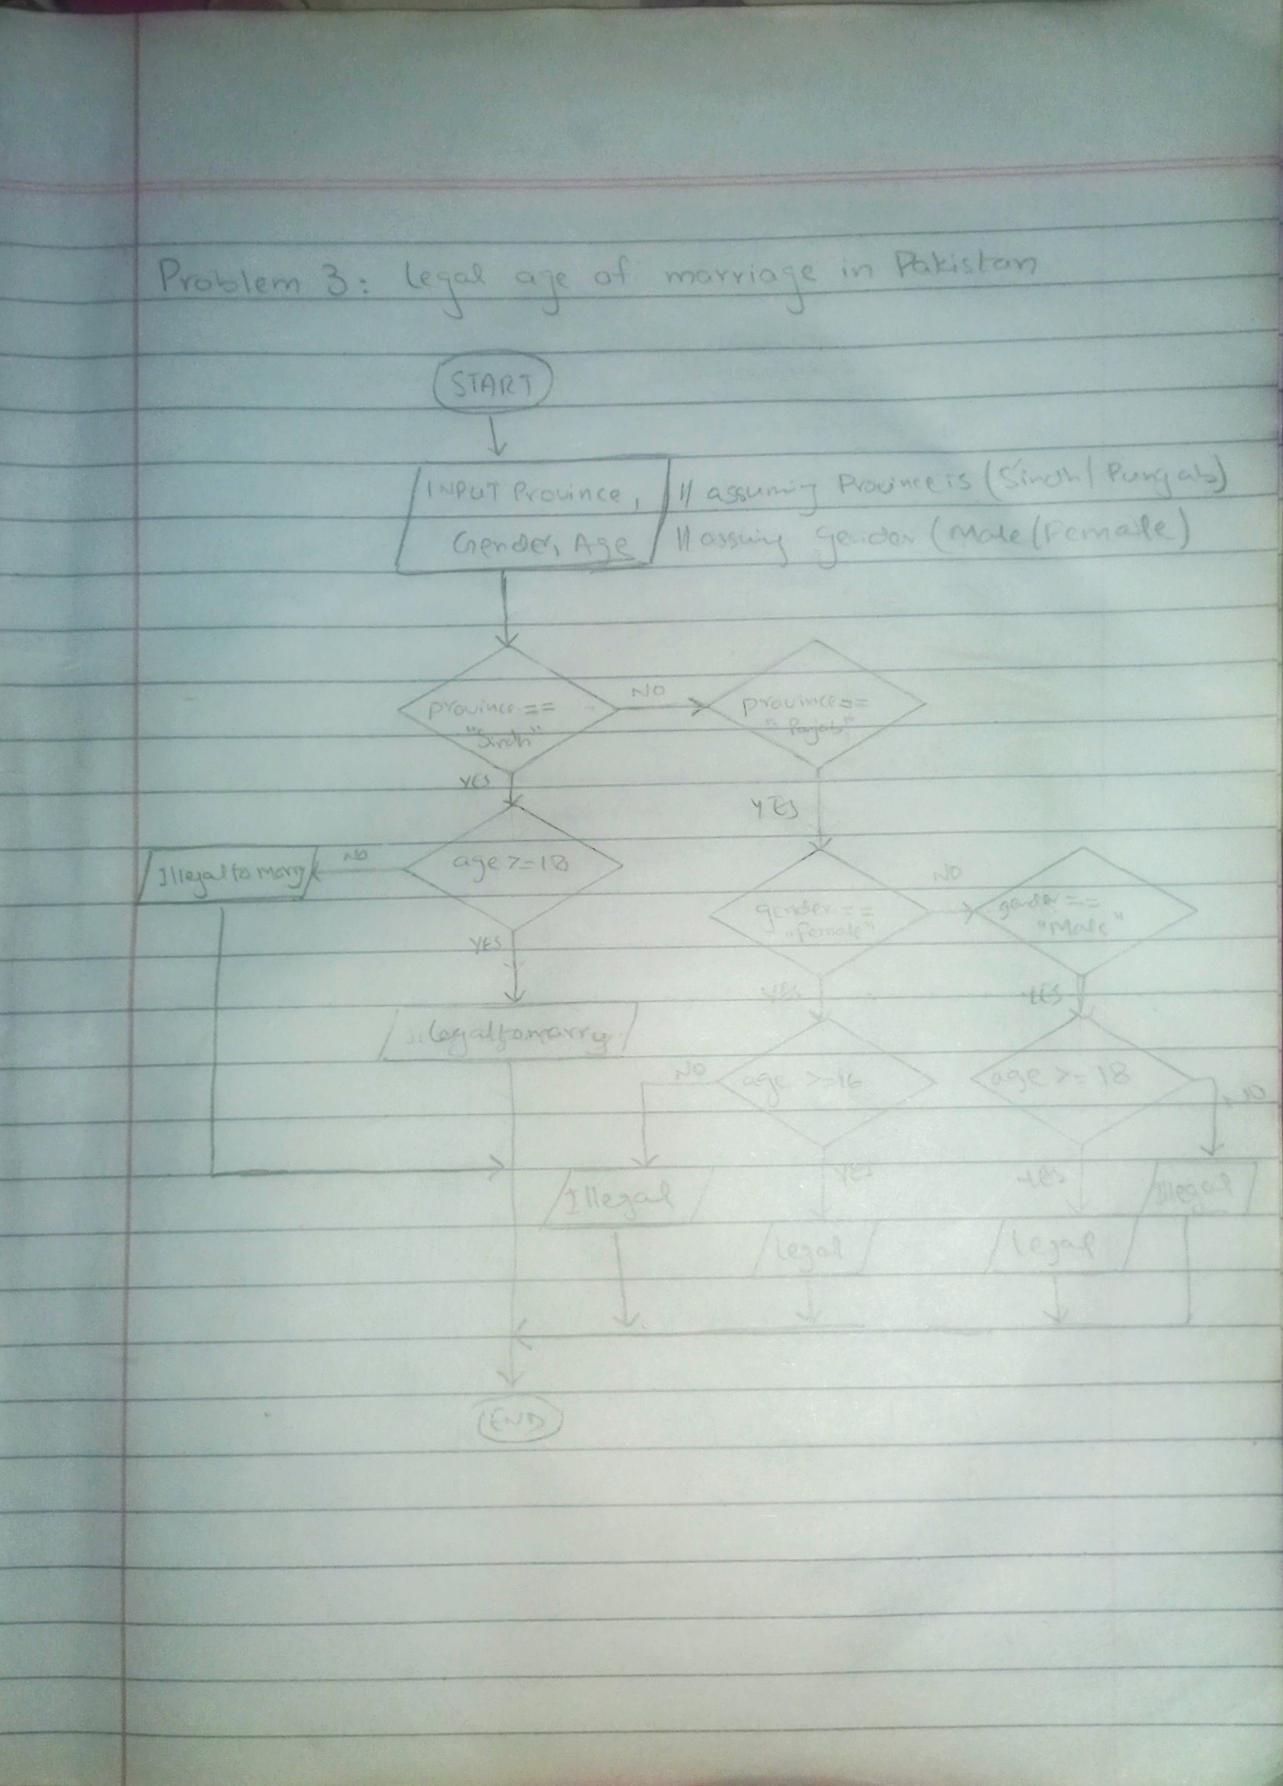 Problem 3: legal age of marriage in Pakistan
START
INPUT Province, // assuming Province is (Sindh/Punjab)
Gender, Age // assuing gender (Male/Female)
province==
"Sindh"
NO
province==
"Panjab"
YES
YES
age >=18
NO
Illegal to marry
YES
legal to marry
gender ==
"Female"
NO
gender ==
"Male"
YES
YES
age >=16
NO
age >= 18
NO
YES
YES
Illegal
Illegal
legal
legal
END